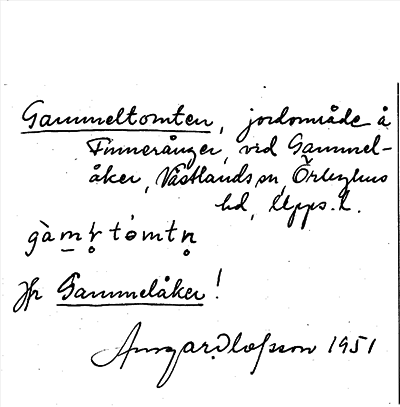 Gammeltomten, jordområde å
Finnerånger, vid Gammel-
åker, Västlands sn, Örbyhus
hd, Upps. l.
gàmḷtòmtṇ
Jfr Gammelåker!
Olofsson 1951